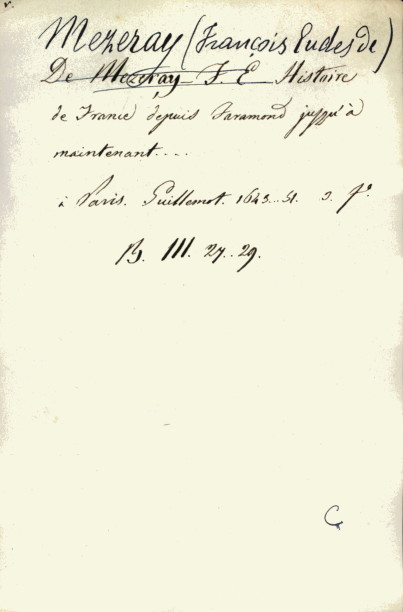 Mezeray (François Eudes de)
De Mezeray F. E Histoire
de France depuis Faramond jusqu'à
maintenant....
à Paris. Guillemot. 1643..51. 3. fº
B. III. 27..29.
C